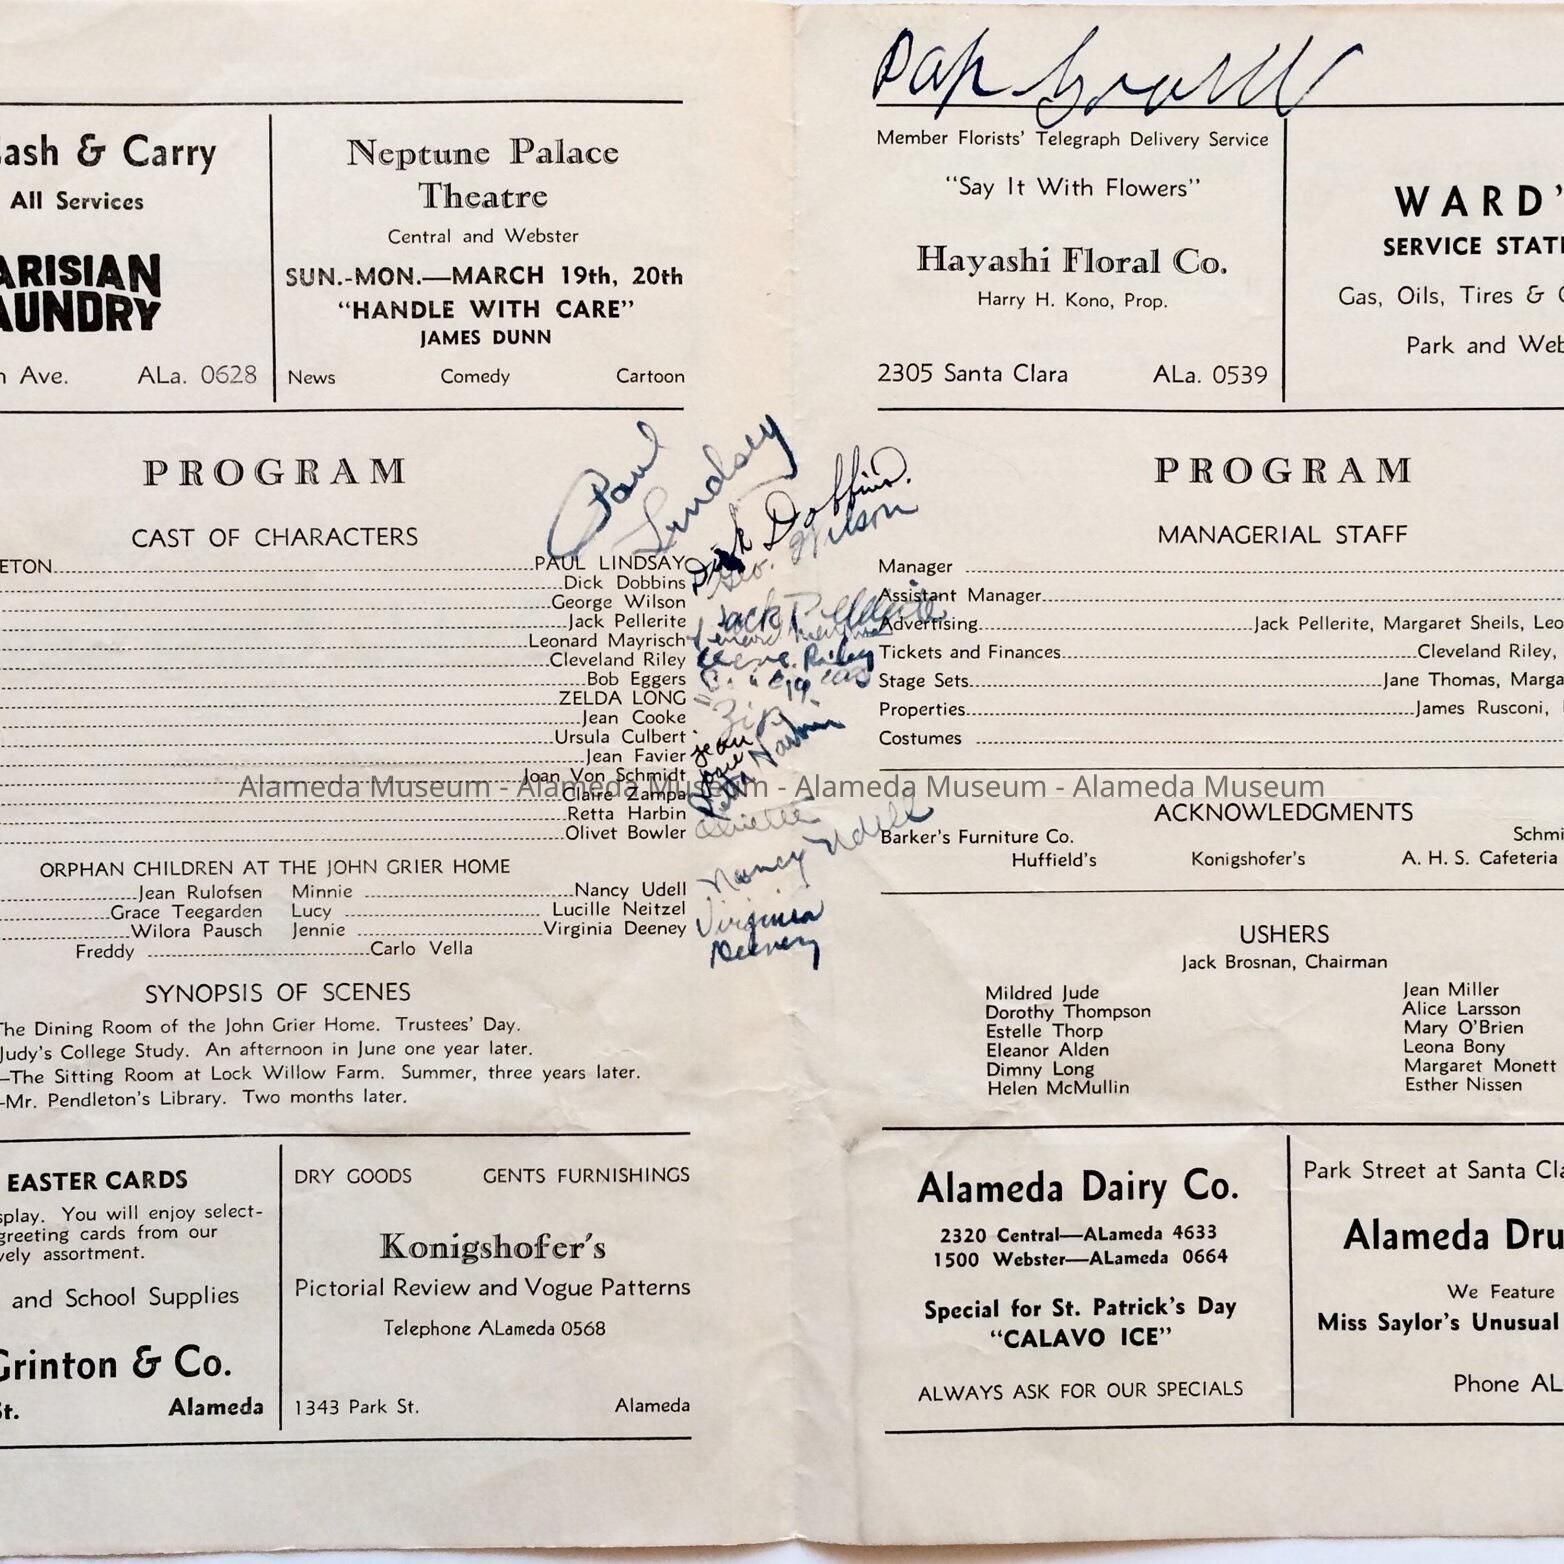 ash & Carry
All Services
ARISIAN
AUNDRY
Ave.    ALa. 0628
Neptune Palace
Theatre
Central and Webster
SUN.-MON.—MARCH 19th, 20th
“HANDLE WITH CARE”
JAMES DUNN
News    Comedy    Cartoon
PROGRAM
CAST OF CHARACTERS
ETON PAUL LINDSAY
Dick Dobbins
George Wilson
Jack Pellerite
Leonard Mayrisch
Cleveland Riley
Bob Eggers
ZELDA LONG
Jean Cooke
Ursula Culbert
Jean Favier
Joan Von Schmidt
Claire Zampa
Retta Harbin
Olivet Bowler
ORPHAN CHILDREN AT THE JOHN GRIER HOME
Jean Rulofsen    Minnie Nancy Udell
Grace Teegarden    Lucy Lucille Neitzel
Wilora Pausch    Jennie Virginia Deeney
Freddy Carlo Vella
SYNOPSIS OF SCENES
The Dining Room of the John Grier Home. Trustees’ Day.
Judy’s College Study. An afternoon in June one year later.
—The Sitting Room at Lock Willow Farm. Summer, three years later.
—Mr. Pendleton’s Library. Two months later.
EASTER CARDS
splay. You will enjoy select-
greeting cards from our
vely assortment.
and School Supplies
Grinton & Co.
St.    Alameda
DRY GOODS    GENTS FURNISHINGS
Konigshofer’s
Pictorial Review and Vogue Patterns
Telephone ALameda 0568
1343 Park St.    Alameda
Paul
Lindsey
Dick Dobbins.
Geo. Wilson
Jack Pellerite
Cleve. Riley
Zip
Jean
Retta Harbin
Nancy Udell
Virginia
Deeney
Member Florists’ Telegraph Delivery Service
“Say It With Flowers”
Hayashi Floral Co.
Harry H. Kono, Prop.
2305 Santa Clara    ALa. 0539
WARD’
SERVICE STATI
Gas, Oils, Tires &
Park and Web
PROGRAM
MANAGERIAL STAFF
Manager
Assistant Manager
Advertising Jack Pellerite, Margaret Sheils, Leo
Tickets and Finances Cleveland Riley,
Stage Sets Jane Thomas, Marga
Properties James Rusconi,
Costumes
Alameda Museum - Alameda Museum - Alameda Museum - Alameda Museum
ACKNOWLEDGMENTS
Barker’s Furniture Co.    Schmi
Huffield’s    Konigshofer’s    A. H. S. Cafeteria
USHERS
Jack Brosnan, Chairman
Mildred Jude
Dorothy Thompson
Estelle Thorp
Eleanor Alden
Dimny Long
Helen McMullin
Jean Miller
Alice Larsson
Mary O’Brien
Leona Bony
Margaret Monett
Esther Nissen
Alameda Dairy Co.
2320 Central—ALameda 4633
1500 Webster—ALameda 0664
Special for St. Patrick’s Day
“CALAVO ICE”
ALWAYS ASK FOR OUR SPECIALS
Park Street at Santa Cla
Alameda Dru
We Feature
Miss Saylor’s Unusual
Phone AL